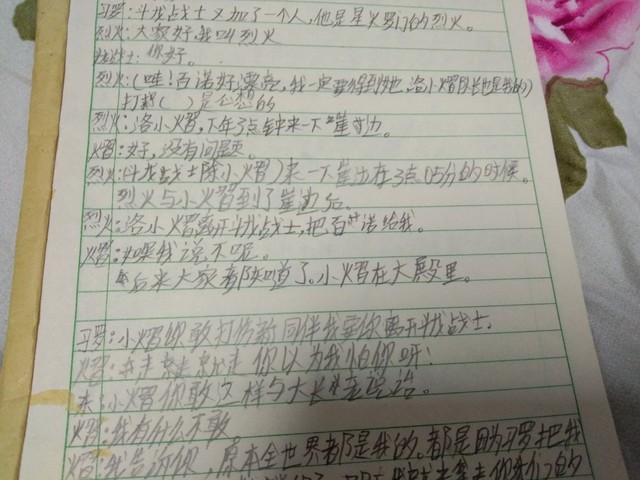 习罗:斗龙战士又加了一个人,他是星火罗门的烈火。
烈火:大家好,我叫烈火
战士:你好。
烈火:(哇!百诺好漂亮,我一定要得到她,洛小熠队长也是我的)
打( )是心想的
烈火:洛小熠,下午3点钟来一下崖边。
熠:好,没有问题。
烈火:斗龙战士除小熠)来一下崖边在3点05分的时候。
烈火与小熠到了崖边后。
烈火:洛小熠离开斗龙战士,把百诺给我。
熠:如果我说不呢。
后来大家都知道了。小熠在大殿里。
习罗:小熠你敢打伤新同伴我要你离开斗龙战士。
熠:走就走你以为我怕你呀!
东:小熠你敢这样与大长老说话。
熠:我有什么不敢。
熠:我告诉你,原本全世界都是我的。都是因为习罗把我